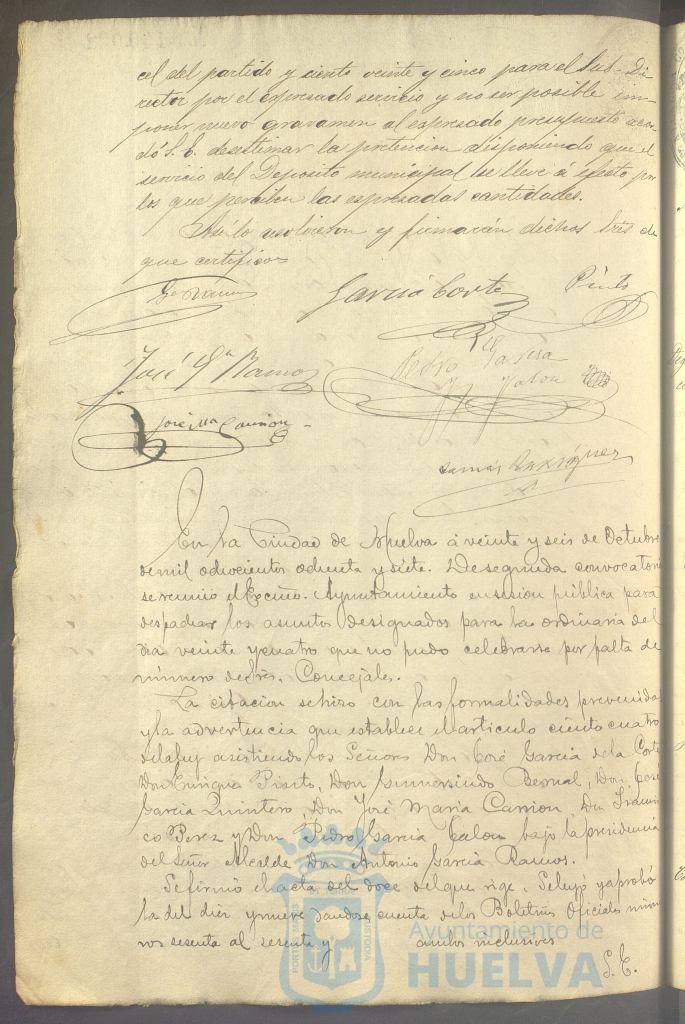 cel del partido y ciento veinte y cinco para el Sub-Di
rector por el espresado servicio y no ser posible im-
poner nuevo gravamen al espresado presupuesto acor-
dó S. E. desestimar la pretencion disponiendo que el
servicio del Deposito municipal se lleve á efecto por
los que perciben las espresadas cantidades.
Asi lo resolvieron y firmarán dichos Sres de
que certifico
García Corte Pinto
José Gª Ramos Pedro García
Jalon
José Mª Carrion
En la Ciudad de Huelva á veinte y seis de Octubre
de mil ochocientos ochenta y siete. De segunda convocatoria
se reunió el Excmo. Ayuntamiento en sesion pública para
despachar los asuntos designados para la ordinaria del
dia veinte y cuatro que no pudo celebrarse por falta de
número de Sres. Concejales.
La citacion se hizo con las formalidades prevenidas
y la advertencia que establece el articulo ciento cuatro
de la ley asistiendo los Señores Don José Garcia de la Corte
Don Enrique Pinto, Don Gumersindo Bernal, Don José
Garcia Quintero, Don José Maria Carrion, Don Francis
co Perez y Don Pedro Garcia Jalon bajo la presidencia
del Señor Alcalde Don Antonio Garcia Ramos.
Se firmó el acta del doce del que rige. Se leyó y aprobó
la del diez y nueve dandose cuenta de los Boletines Oficiales núme
ros sesenta al sesenta y ambos inclusives
S. E.
Ayuntamiento de
HUELVA